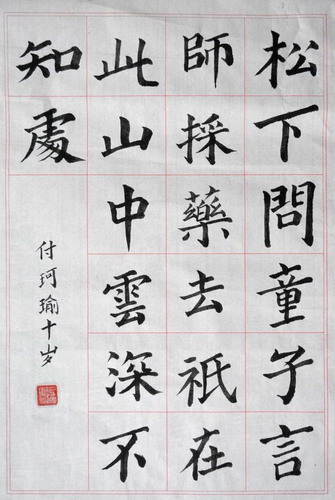 松下問童子言
師採藥去祇在
此山中雲深不
知處
付珂瑜十岁